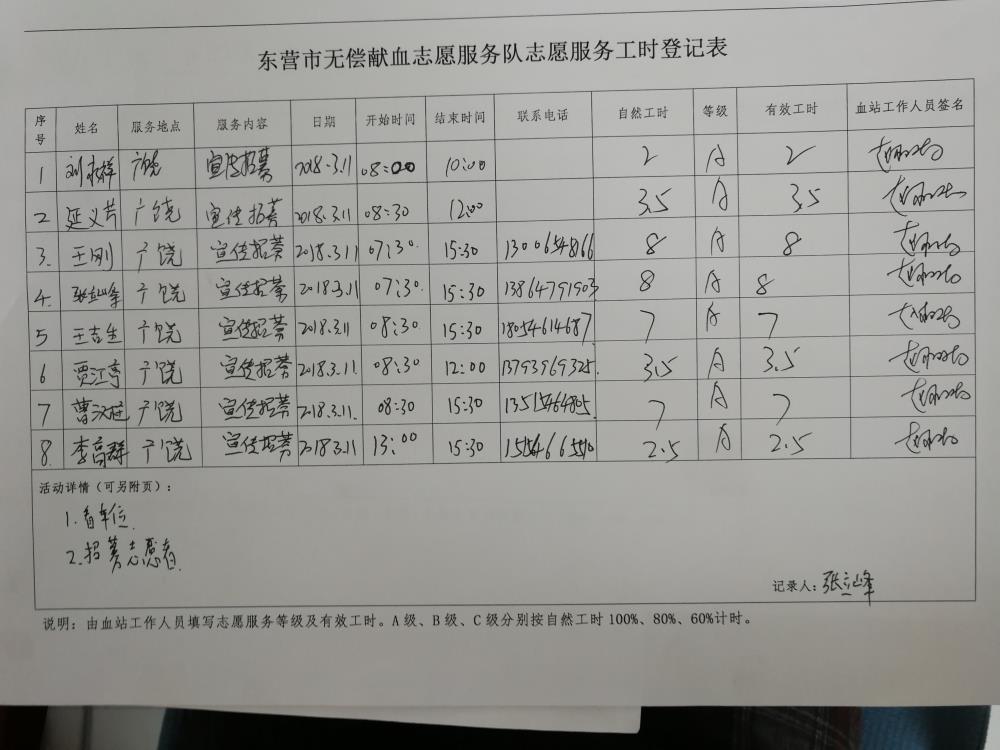 东营市无偿献血志愿服务队志愿服务工时登记表
序号 姓名 服务地点 服务内容 日期 开始时间 结束时间 联系电话 自然工时 等级 有效工时 血站工作人员签名
1 刘祥 广饶 宣传招募 2018.3.11 08:00 10:00 2 A 2
2 延义芹 广饶 宣传招募 2018.3.11 08:30 12:00 3.5 A 3.5
3. 王刚 广饶 宣传招募 2018.3.11 07:30. 15:30 13006548166 8 A 8
4. 张立峰 广饶 宣传招募 2018.3.11 07:30. 15:30 13864791903 8 A 8
5 王吉生 广饶 宣传招募 2018.3.11 08:30 15:30 18054614687 7 A 7
6 贾江亭 广饶 宣传招募 2018.3.11. 08:30 12:00 13793969325. 3.5 A 3.5
7 曹汉 广饶 宣传招募 2018.3.11. 08:30 15:30 13515464805. 7 A 7
8. 李高群 广饶 宣传招募 2018.3.11 13:00 15:30 2.5 A 2.5
活动详情（可另附页）：
1.看车位.
2.招募志愿者.
记录人：张立峰
说明：由血站工作人员填写志愿服务等级及有效工时。A级、B级、C级分别按自然工时100%、80%、60%计时。